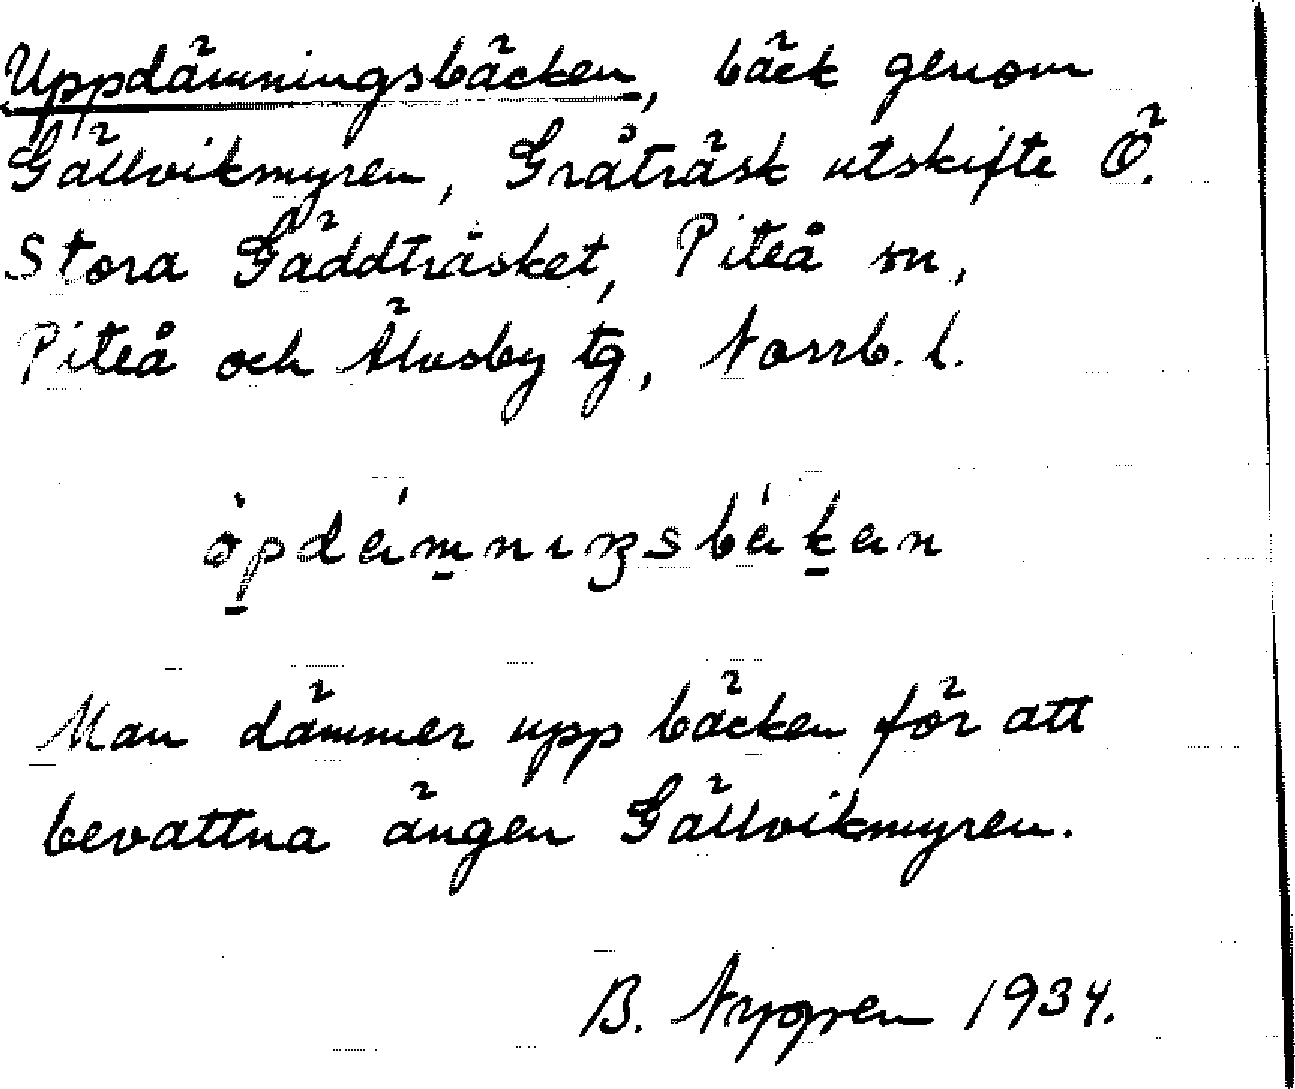 Uppdämningsbäcken, bäck genom
Gällvikmyren, Gråträsk utskifte Ö.
Stora Gäddträsket, Piteå sn,
Piteå och Älvsby tg, Norrb. l.
Man dämmer upp bäcken för att
bevattna ängen Gällvikmyren.
B. Nygren 1934.